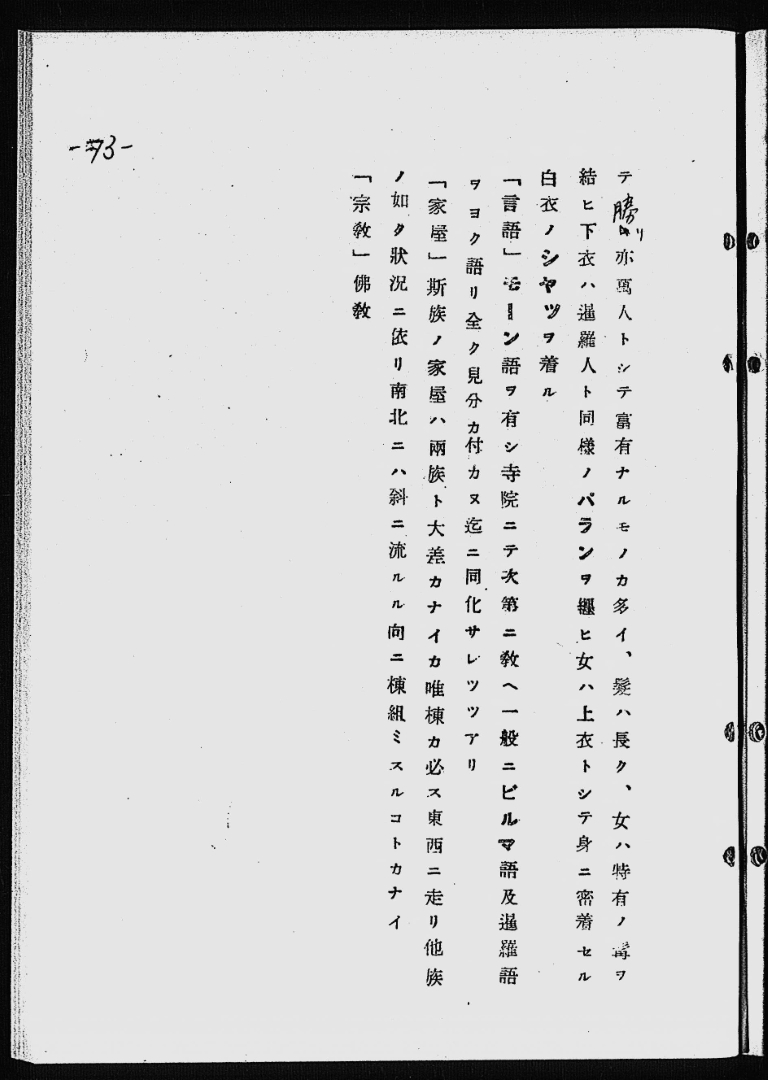 -73-
テ勝リ亦萬人トシテ富有ナルモノカ多イ、髮ハ長ク、女ハ特有ノ髷ヲ
結ヒ下衣ハ暹羅人ト同樣ノパランヲ纒ヒ女ハ上衣トシテ身ニ密着セル
白衣ノシヤツヲ着ル
「言語」モーン語ヲ有シ寺院ニテ次第ニ敎ヘ一般ニビルマ語及暹羅語
ヲヨク語リ全ク見分カ付カヌ迄ニ同化サレツツアリ
「家屋」斯族ノ家屋ハ兩族ト大差カナイカ唯棟カ必ス東西ニ走リ他族
ノ如ク狀況ニ依リ南北ニハ斜ニ流ルル向ニ棟組ミスルコトカナイ
「宗敎」佛敎